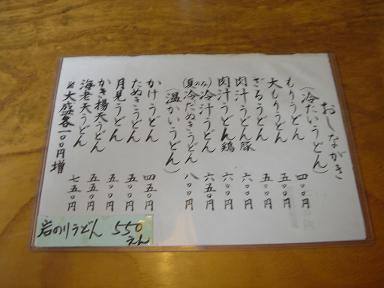 おしながき
(冷たいうどん)
もりうどん 四〇〇円
大もりうどん 五〇〇円
ざるうどん 五〇〇円
肉汁うどん豚 六〇〇円
肉汁うどん鶏 六〇〇円
冷汁うどん 六五〇円
(夏のみ)冷たぬきうどん 八〇〇円
(温かいうどん)
かけうどん 四五〇円
たぬきうどん 五〇〇円
月見うどん 五〇〇円
かき揚天うどん 五五〇円
海老天うどん 七五〇円
大盛各一〇〇円増
岩の川うどん 550えん